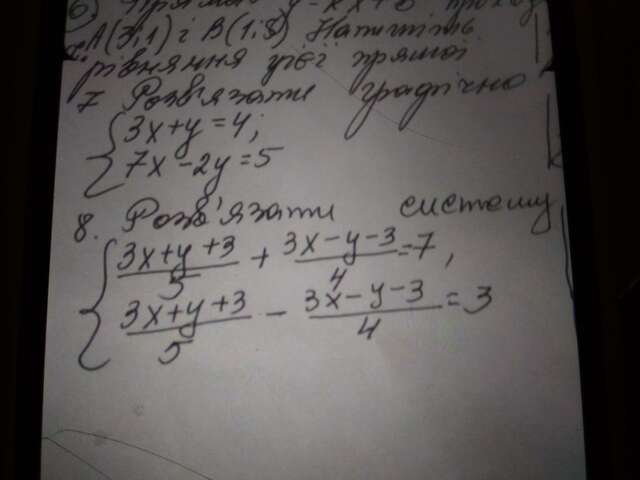 6) Пряма y=kx+b прохо
A(3;1) і B(1;5) Напишіть
рівняння цієї прямої
7 Розв'язати графічно
3x+y=4;
7x-2y=5
8. Розв'язати систему
(3x+y+3)/5 + (3x-y-3)/4 = 7,
(3x+y+3)/5 - (3x-y-3)/4 = 3